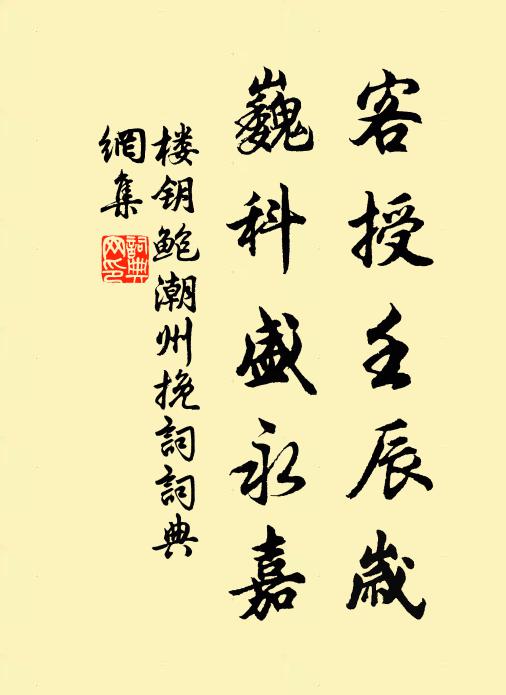 客授壬辰歲
巍科盛永嘉
楼钥鲍潮州挽詞詞典
網集
詞典網印